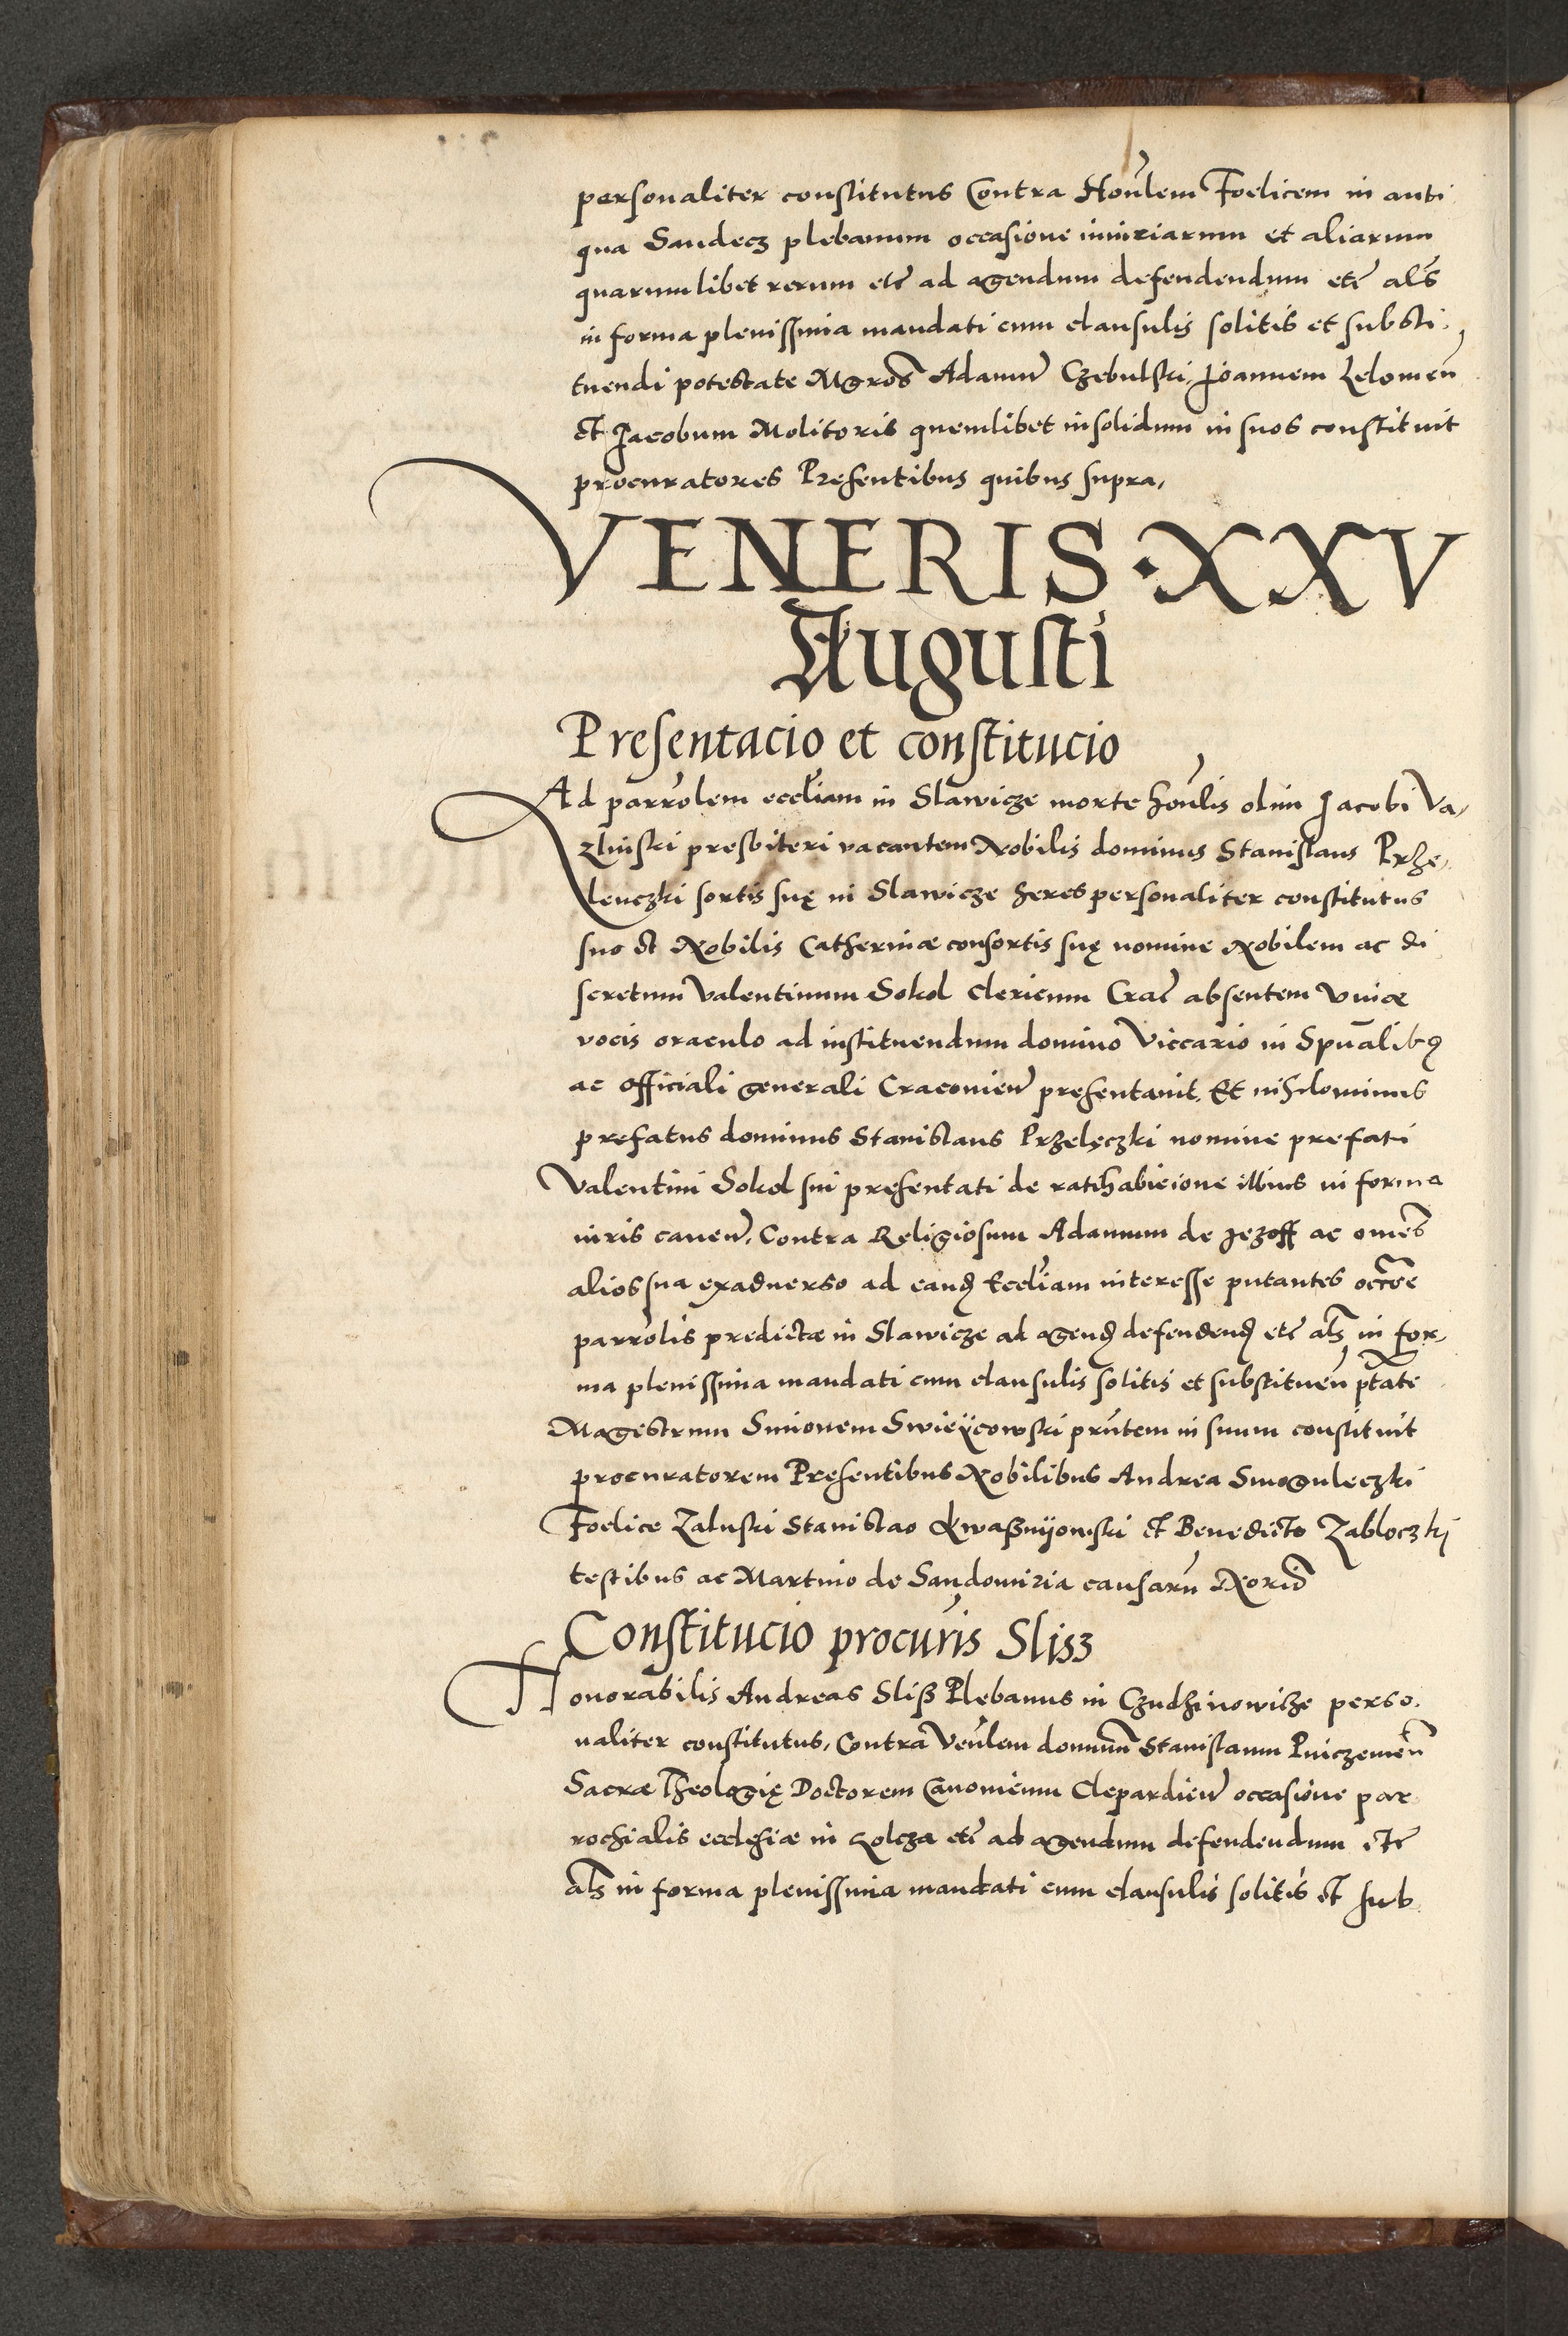 personaliter constitutus Contra Honũlem Foelicem in anti
qua Sandecz plebanum occasione iniuriarum et aliarum
quarumlibet rerum etc̃ ad agendum defendendum etc̃ als̃
in forma plenissima mandati cum clausulis solitis et substi,
tuendi potestate Mgros̃ Adamum Czebulski, Joannem Lelowien̄
et Jacobum Molitoris quemlibet insolidum in suos constituit
procuratores Presentibus quibus supra,
VENERIS · XXV
Augusti
Presentacio et constitucio
Ad parrolem eccliam in Slawicze morte honulis olim Jacobi Va,
zlinski presbiteri vacantem Nobilis dominus Stanislaus Prze,
lenczki sortis suę in Slawicze heres personaliter constitutus
suo et Nobilis Catherinæ consortis suę nomine Nobilem ac di
scretum Valentinum Sokol clericum Crac̃ absentem viuæ
vocis oraculo ad instituendum domino Viccario in Spũalibꝰ
ac officiali generali Cracouien̄ presentauit. Et nihilominus
prefatus dominus Stanislaus Przelęczki nomine prefati
Valentini Sokol sui presentati de ratihabicione illius in forma
iuris cauen̄. Contra Religiosum Adamum de Jezoff ac omẽs
alios sua exaduerso ad eanđ Eccliam interesse putantes occõe
parrolis predictæ in Slawicze ad agenđ defendenđ etc̃ als̃ in for,
ma plenissima mandati cum clausulis solitis et substituen̄ ptãte
Magistrum Simonem Swieÿcowski pr̃ntem in suum constituit
procuratorem Presentibus Nobilibus Andrea Smoguleczki
Foelice Zaluski Stanislao Kwaßnijowski et Benedicto Zabloczkj
testibus ac Martino de Sandomiria causarũ Norio
Constitucio procuris Slisz
Honorabilis Andreas Sliß Plebanus in Czudzinowicze perso,
naliter constitutus, Contra Venũlem dominũ Stanislaum Pniczenien̄
Sacræ Theologię Doctorem Canonicum Clepardien̄ occasione par
rochialis ecclesiæ in Lolcza etc̃ ad agendum defendendum etc̃
als̃ in forma plenissima mandati cum clausulis solitis et sub